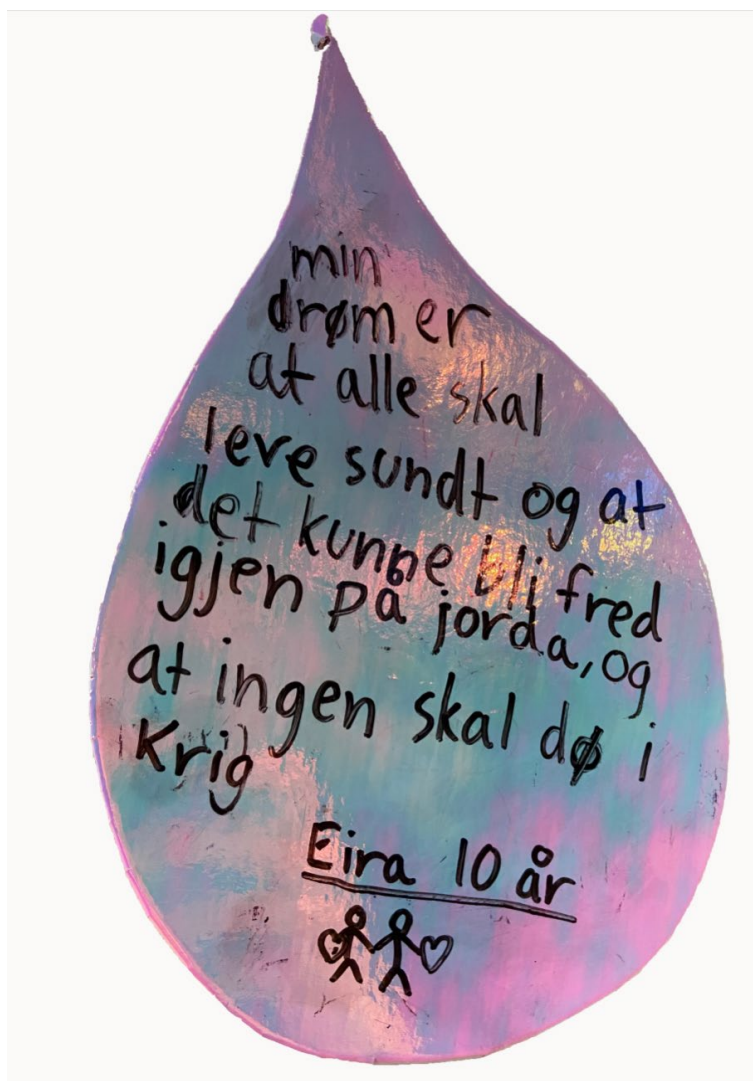 min
drøm er
at alle skal
leve sundt og at
det kunne bli fred
igjen på jorda, og
at ingen skal dø i
Krig
Eira 10 år